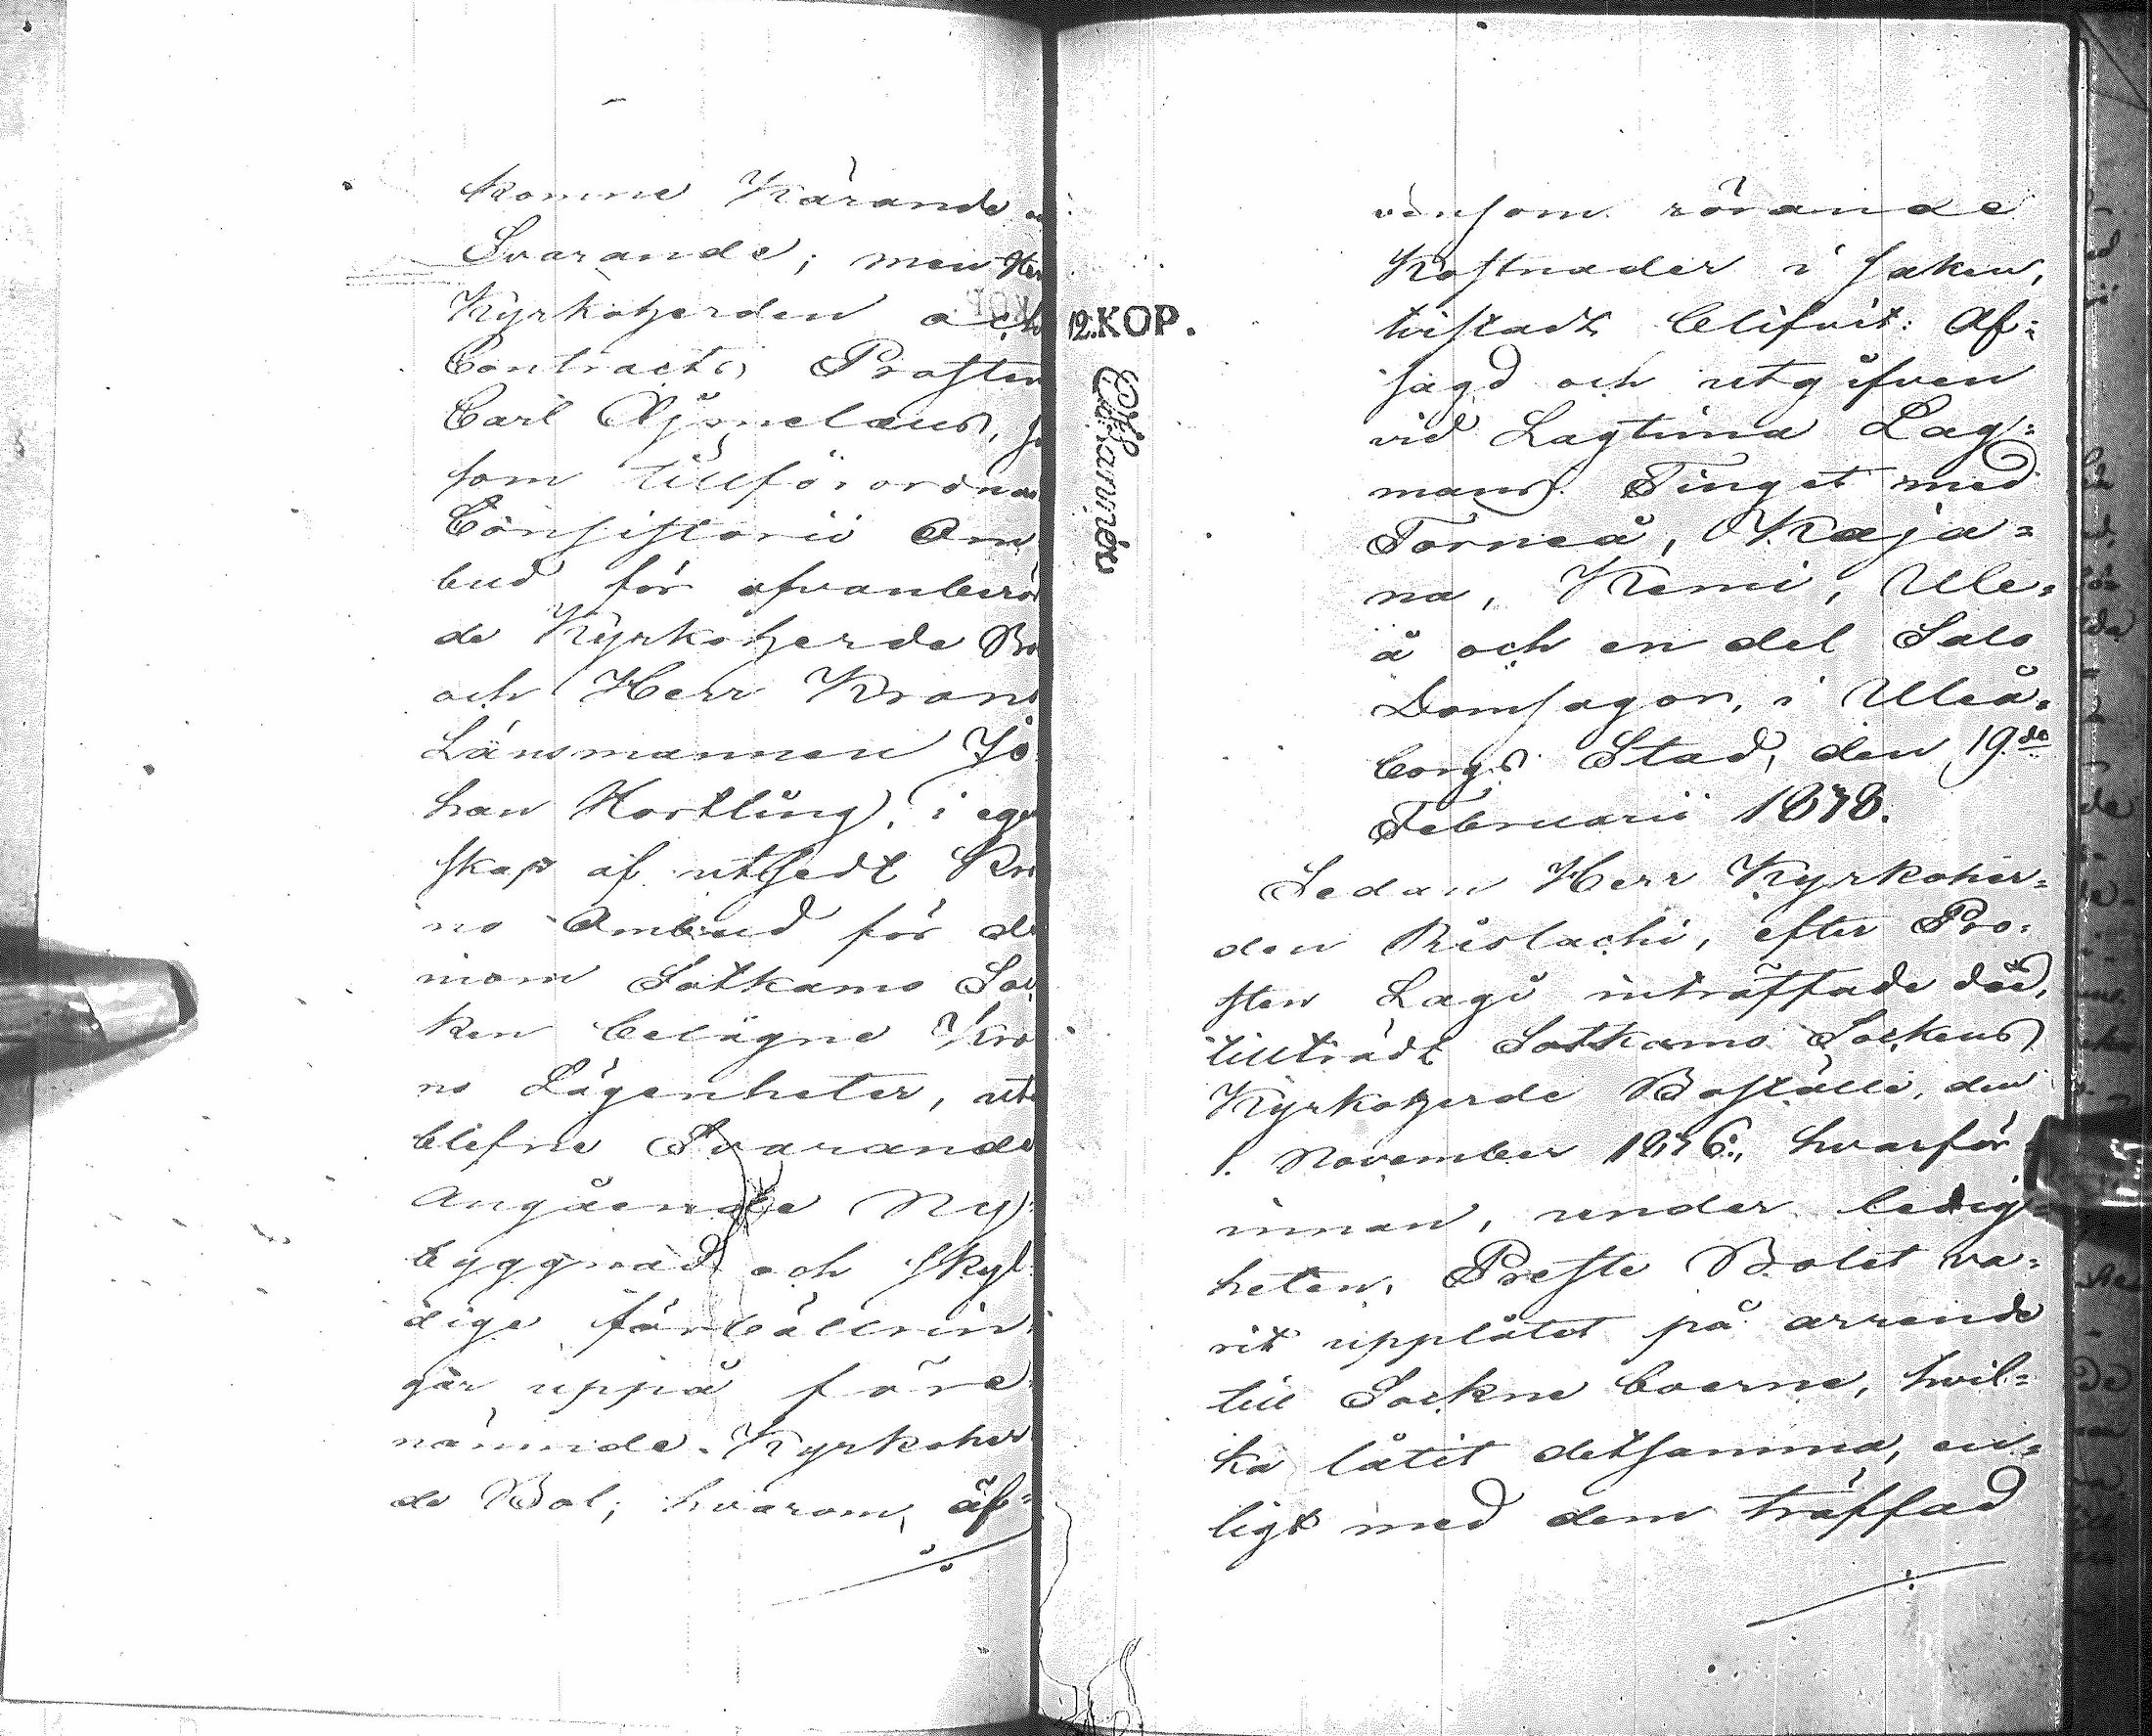 komme Kärande
Svarande; men Her
Kyrkoherden och
Contracts Prosten
Carl
som tillförordna
Consistorii Om
bud för ofvanberör
de Kyrkoherde Bo
och Herr Krono
Länsmannen Jo
han Hortling, i egen
skap af utsedt Kro
no Ombud för de
inom Sotkamo Soc
ken belägne Kro
no Lägenheter, ute
blefne Svarande
Angående Ny
byggnad och skyl
dige förbättrin
gar uppå före
nämnde Kyrkoher
de Bol; hvarom, äf=
12.KOP.
vensom rörande
Kostnader i saken,
tvistadt blifvit: Af=
sagd och utgifven
vid Lagtima Lag=
mans Tinget med
Torneå, Kaja=
na, Kemi, Ule=
å och en del Salo
Domsagor, i Uleå=
borgs Stad, den 19de
Februarii 1878.
Sedan Herr Kyrkoher=
den Ristlachi, efter Pro=
sten Lagi inträffade död,
tillträdt Sotkamo Sockens
Kyrkoherde Boställe, den
1. November 1876, hvarför
innan, under ledig=
heten, Preste Bolet va=
rit upplåtet på arrende
till Sockne boerne, hvil=
ka låtit detsamma, en=
ligt med dem träffad